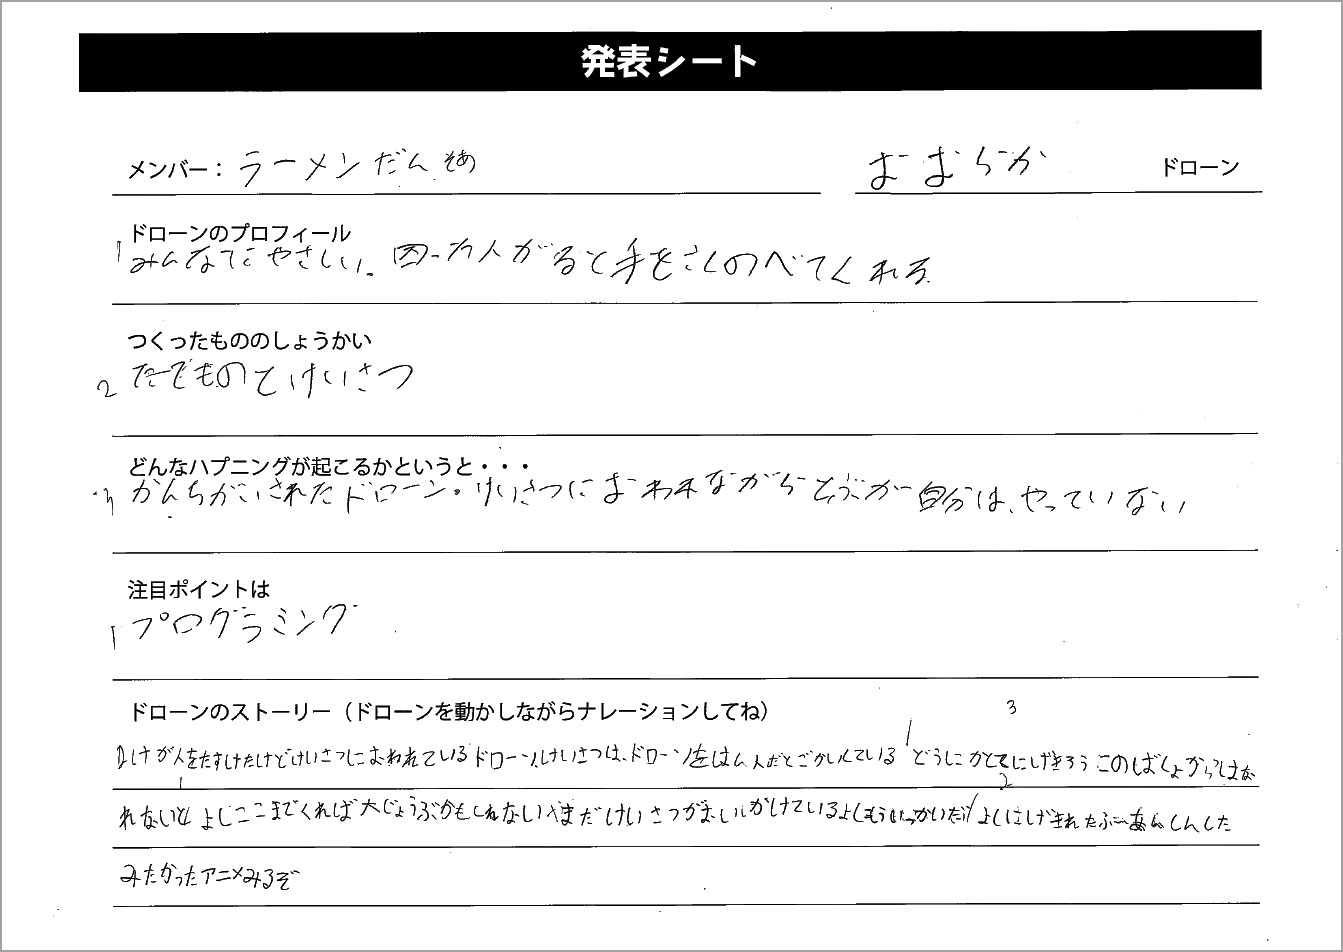 発表シート
メンバー： ラーメン だん そあ おむらか ドローン
ドローンのプロフィール
1 みんなでにやさしい。 困った人がると手をさしのべてくれる
つくったもののしょうかい
2 たてものとけいさつ
どんなハプニングが起こるかというと・・・
3 かんちがいされたドローン。けいさつにおわれながらとぶが自分は、やっていない
注目ポイントは
1 プログラミング
ドローンのストーリー（ドローンを動かしながらナレーションしてね） 3
けが人をたすけたけどけいさつにおわれているドローン、けいさつは、ドローンをはん人だとごかいしている どうにかとてにげきろうこのばしょからはな
1 2
れないと よしここまでくれば大じょうぶかもしれないいやまだけいさつがおいかけているよしもういっかいだ よしにげきれたふーあんしんした
みたかったアニメみるぞ